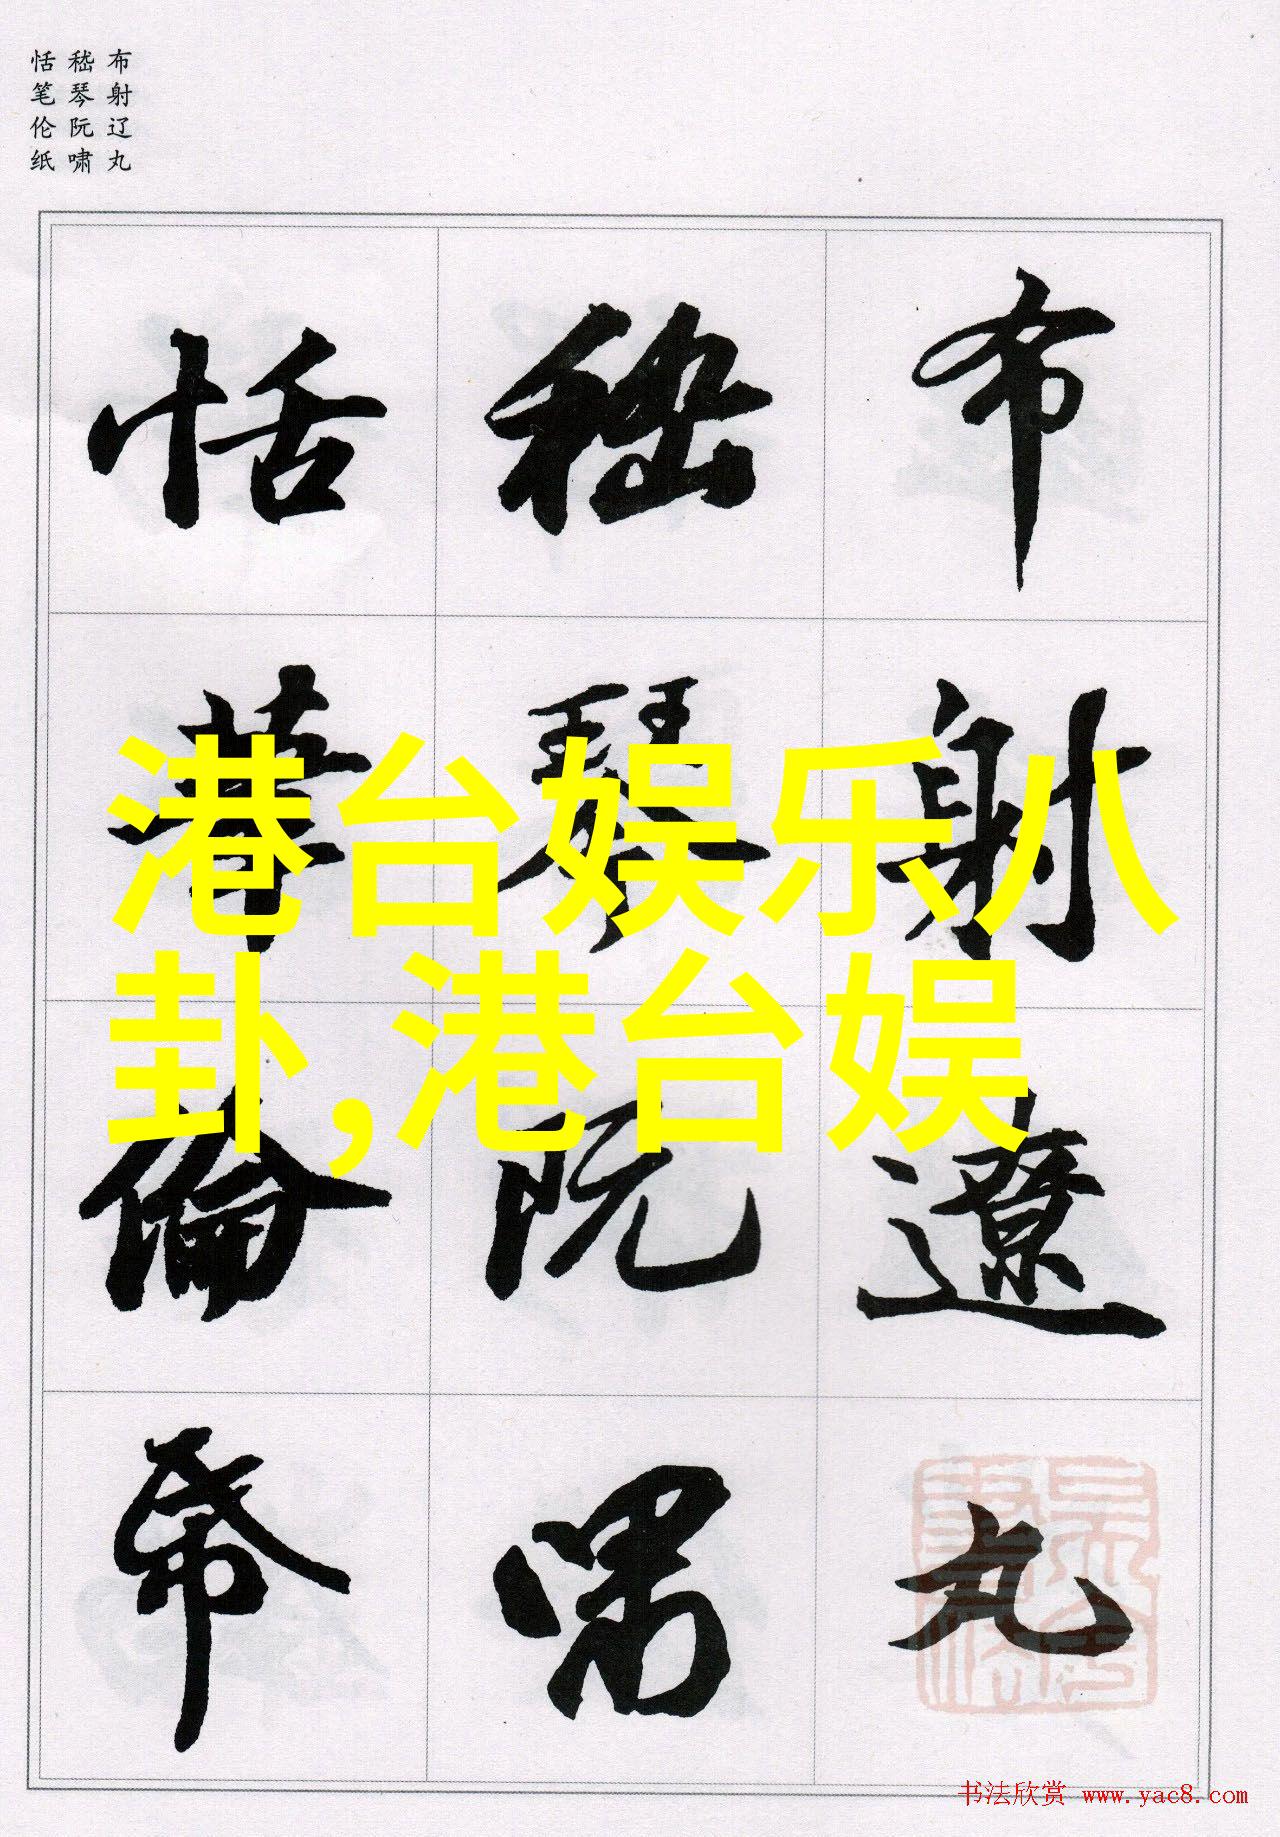 布射辽丸
嵇琴阮啸
恬笔伦纸
布射遼丸
嵇琴阮嘯
恬筆倫帋
港台娱乐八
卦,港台娱
书法欣赏 www.yac8.com